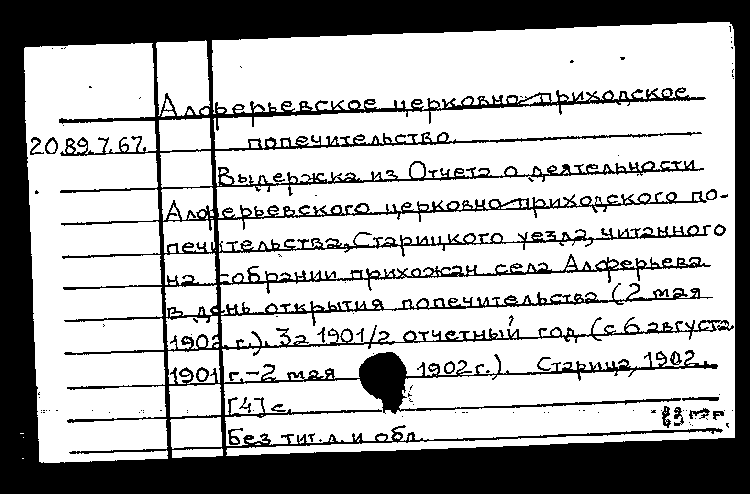 Алферьевское церковно-приходское
20.89.7.67. попечительство.
Выдержка из Отчета о деятельности
Алферьевского церковно-приходского по-
печительства, Старицкого уезда, читанного
на собрании прихожан села Алферьева
в день открытия попечительства (2 мая
1902 г.). За 1901/2 отчетный год (с 6 августа
1901 г.-2 мая 1902 г.). Старица, 1902.
[4] с.
Без тит. л. и обл.